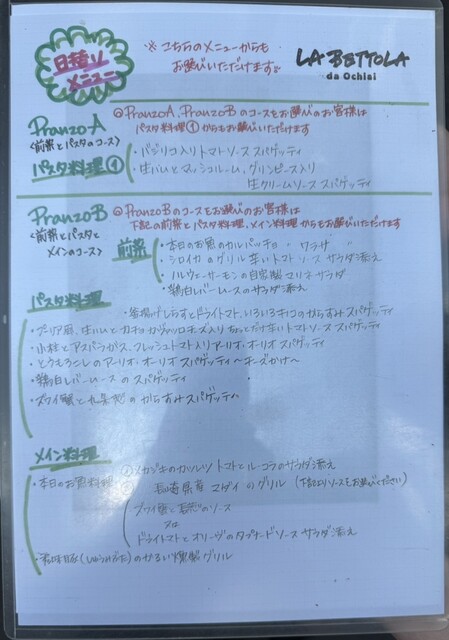 日替り
メニュー
※こちらのメニューからも
お選びいただけます
LA BETTOLA
da Ochiai
Pranzo A
<前菜とパスタのコース>
◎Pranzo A、Pranzo Bのコースをお選びのお客様は
パスタ料理①からもお選びいただけます
パスタ料理①
・バジリコ入りトマトソース スパゲッティ
・生ハムとマッシュルーム、グリンピース入り
生クリームソース スパゲッティ
Pranzo B
<前菜とパスタと
メインのコース>
◎Pranzo Bのコースをお選びのお客様は
下記の前菜とパスタ料理、メイン料理からもお選びいただけます
前菜
・本日のお魚のカルパッチョ " ワラサ "
・シロイカのグリル 辛いトマトソース サラダ添え
・ サーモンの自家製マリネ サラダ
・鶏白レバームースのサラダ添え
パスタ料理
・釜揚げしらすとドライトマト、いろいろキノコのからすみスパゲッティ
・ 生ハムと チーズ入り ちょっとだけ辛いトマトソース スパゲッティ
・小柱とアスパラガス、フレッシュトマト入りアーリオ・オーリオ スパゲッティ
・とうもろこしのアーリオ・オーリオ スパゲッティ 〜チーズがけ〜
・鶏白レバームースのスパゲッティ
・ズワイ蟹と九条葱のからすみスパゲッティ
メイン料理
・本日のお魚料理
メカジキのカツレツ トマトとルーコラのサラダ添え
長崎県産 マダイのグリル (下記よりソースをお選びください)
ズワイ蟹と のソース
又は
ドライトマトとオリーブのタプナードソース サラダ添え
・ 豚 のかるい燻製グリル